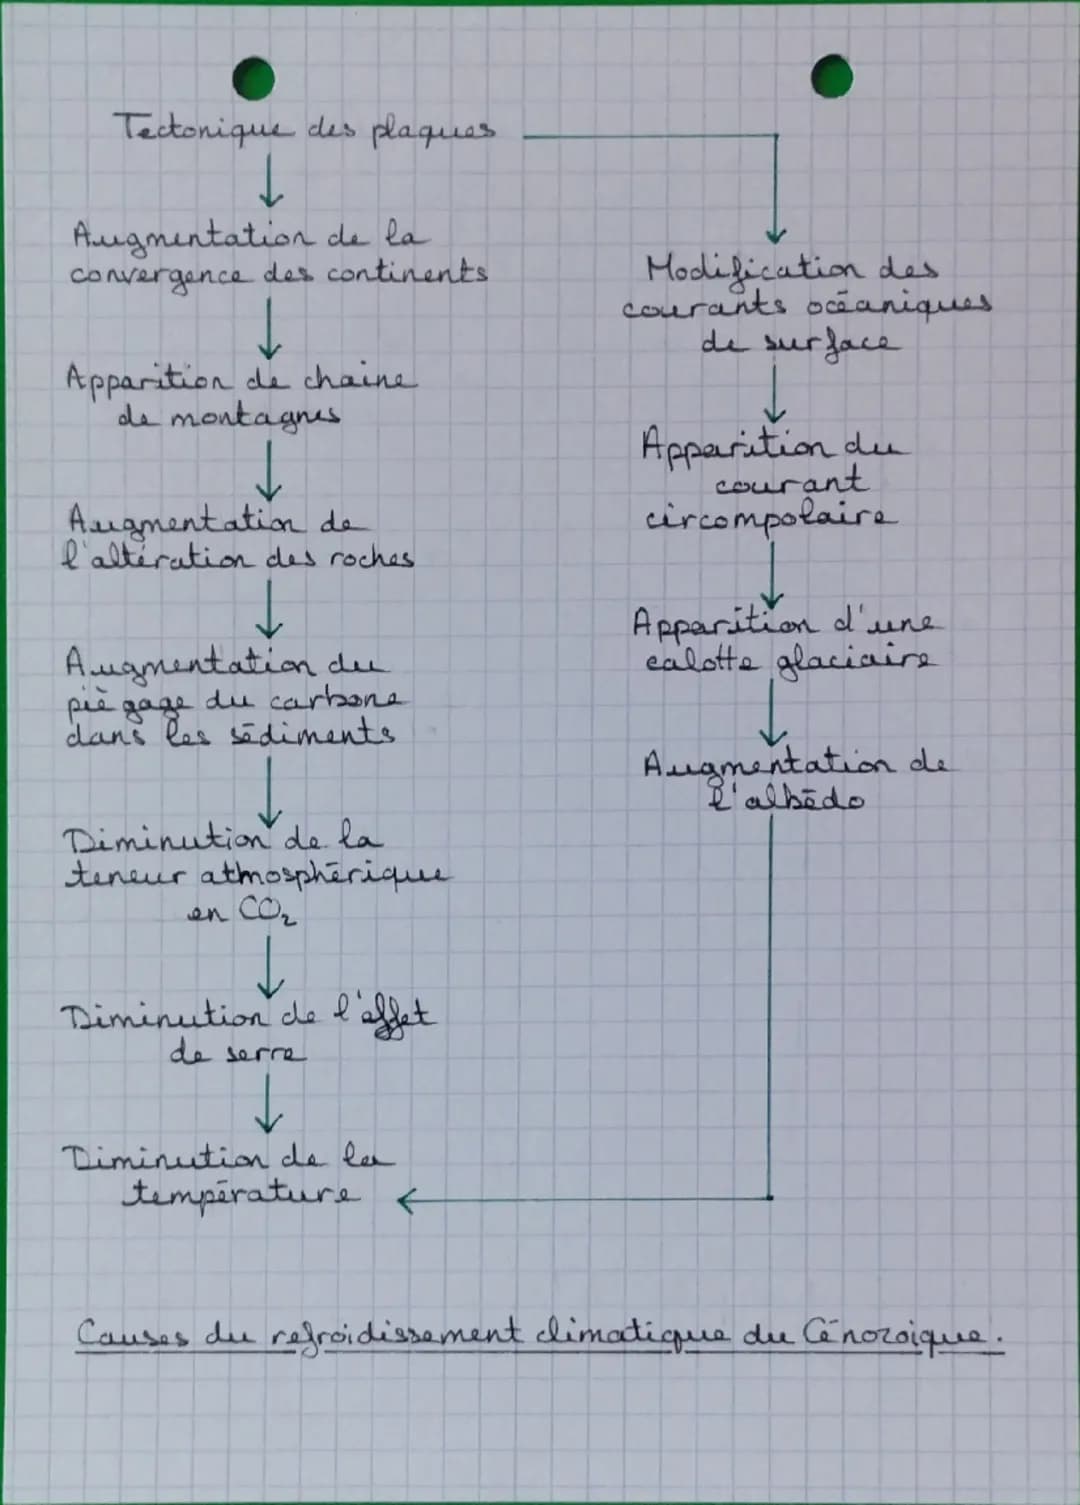 Tectonique des plaques
Augmentation de la
convergence des continents
Apparition de chaine
de montagnes
Augmentation de
l'altération des roches
Augmentation du
piègage du carbone
dans les sédiments
Diminution de la
teneur atmosphérique
en CO₂
Diminution de l'effet
de serre
Diminution de la
température
Modification des
courants océaniques
de surface
Apparition du
courant
circompolaire
Apparition d'une
calotte glaciaire
Augmentation de
l'albédo
Causes du refroidissement climatique du Cénozoique.